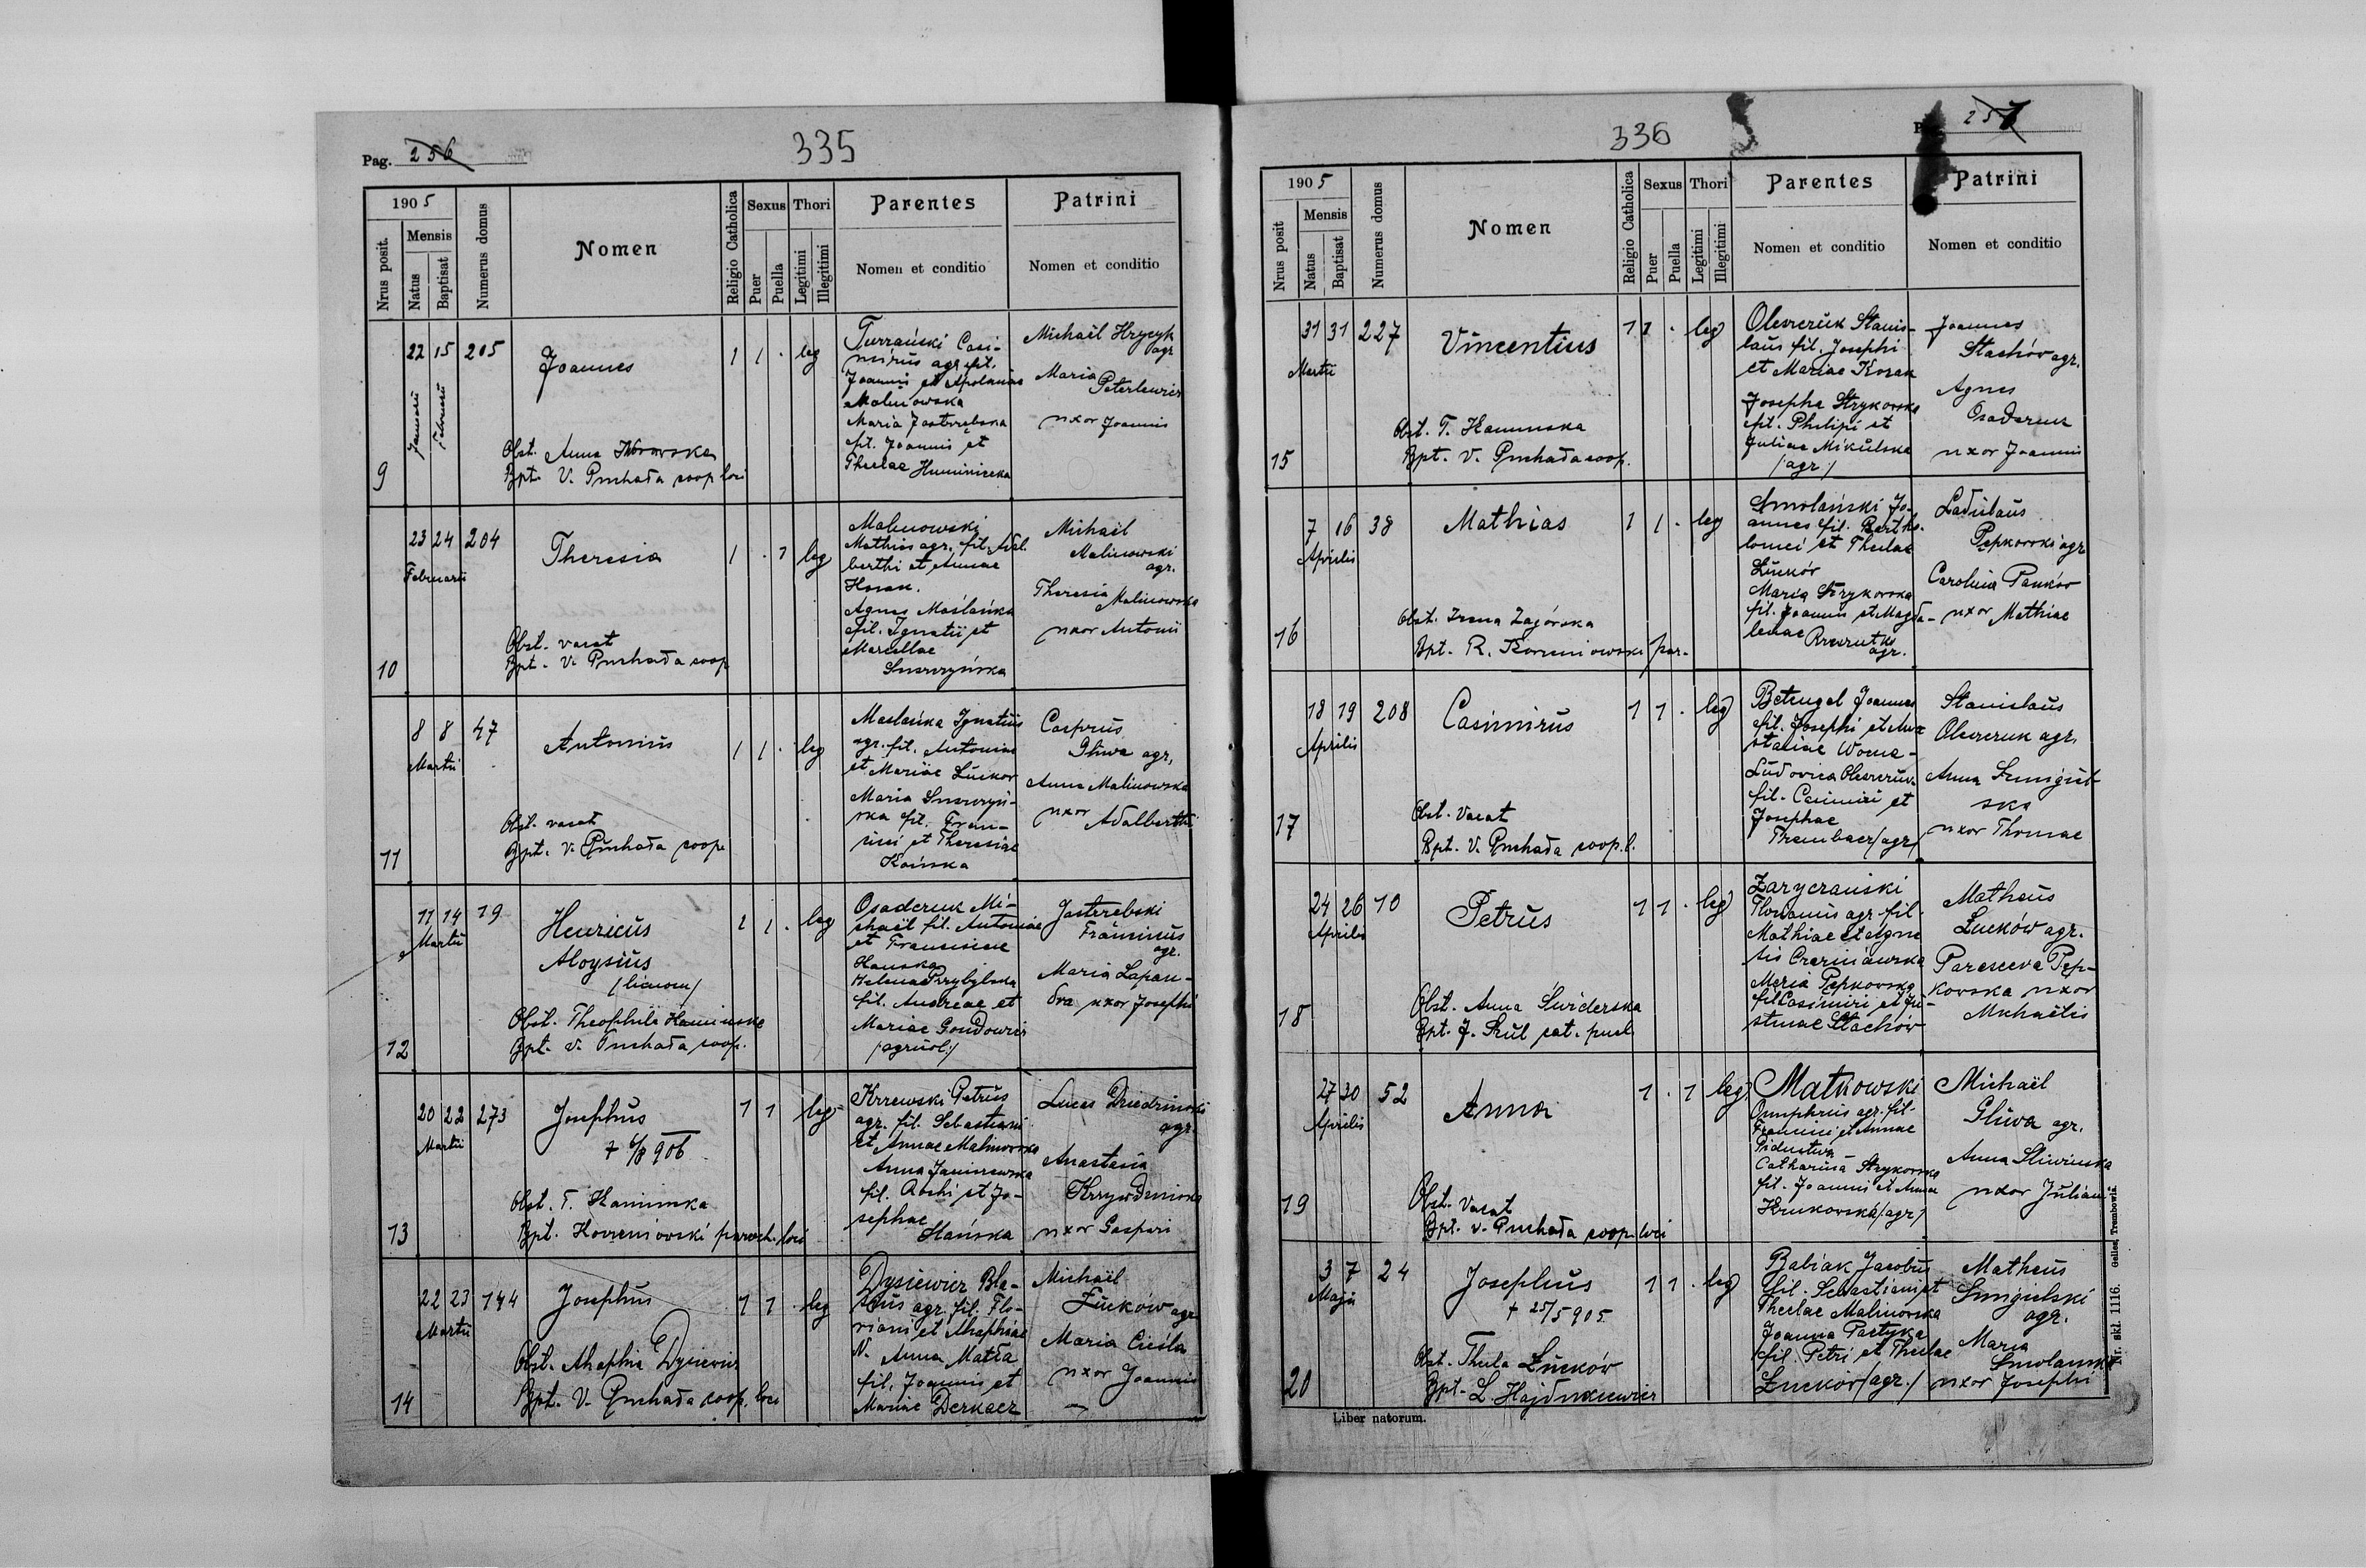 Pag. 256
335
1905
Nrus posit.
Mensis
Natus
Baptisat
Numerus domus
Nomen
Religio Catholica
Sexus
Puer
Puella
Thori
Legitimi
Illegitimi
Parentes
Nomen et conditio
Patrini
Nomen et conditio
9
22 15 205
Januarii Februarii
Joannes
1 1 . leg
Obst. Anna
Bpt. V. Puchała coop loci
Turzański Casi-
mirus agr. fil.
Joannis et Apoloniae
Malinowska
Maria Jastrzębska
fil. Joannis et
Theclae Huminicka
Michaël Hrycyk
agr
Maria
Peterlewicz
uxor Joannis
10
23 24 204
Februarii
Theresia
1 . 1 leg
Obst. vacat
Bpt. V. Puchała coop
Malinowski
Mathias agr. fil. Adal-
berthi et Annae
Agnes Maślańka
fil. Ignatii et
Marcellae
Michaël
Malinowski
agr.
Theresia
Malinowska
uxor Antonii
11
8 8 47
Martii
Antonius
1 1 . leg
Obst. vacat
Bpt. V. Puchała coop
Maslańka Ignatius
agr. fil. Antonii
et Mariae Łuckow
Maria
ska fil. Fran-
cisci et Theresiae
Kańska
Casprus
Gliwa agr,
Anna Malinowska
uxor
Adalberthi
12
11 14 19
Martii
Henricus
Aloysius
/binom/
1 1 . leg
Obst. Theophila Kaminska
Bpt. V. Puchała coop.
Osadczuk Mi-
chaël fil. Antoniae
et Franciscae
Helena Przybylska
fil. Andreae et
Mariae Gondowicz
/agricol:/
Jastrzebski
Franciscus
agr.
Maria Lapan-
dra uxor Josephi
13
20 22 273
Martii
Josephus
1 1 leg
Obst. T. Kaminska
Bpt. Korzeniowski paroch. loci
Krzewski Petrus
agr. fil. Sebastiani
et Annae Malinowska
Anna Janiszewska
fil. Rochi et Jo-
sephae
Hańska
Lucas Dziedzinski
agr.
Anastasia
Krzywdzinska
uxor Gaspari
14
22 23 144
Martii
Josephus
1 1 . leg
Obst. Ahaphia Dysiewicz
Bpt. V. Puchała coop. loci
Dysiewicz Bla-
sius agr. fil. Flo-
riani et Ahaphiae
N. Anna Matła
fil. Joannis et
Mariae Derkacz
Michaël
Łucków agr
Maria Cieśla
uxor Joannis
336
257
1905
Nrus posit
Mensis
Natus
Baptisat
Numerus domus
Nomen
Religio Catholica
Sexus
Puer
Puella
Thori
Legitimi
Illegitimi
Parentes
Nomen et conditio
Patrini
Nomen et conditio
15
31 31 227
Martii
Vincentius
1 1 . leg
Obst. T. Kaminska
Bpt. V. Puchała coop.
Oleszczuk Stanis-
laus fil. Josephi
et Mariae Kozak
Josepha Strykowska
fil. Philipi et
Juliae Mikulska
/agr:/
Joannes
Stachów agr.
Agnes
Osadczuk
uxor Joannis
16
7 16 38
Aprilis
Mathias
1 1 . leg
Obst. Irena Zagórska
Bpt. R. Korzeniowski par.
Smolański Jo-
annes fil. Bartho-
lomei et Theclae
Łuckór
Maria Strykowska
fil. Joannis et Magda-
lenae
agr.
Ladislaus
Pepkowski agr
Carolina Pankór
uxor Mathiae
17
18 19 208
Aprilis
Casimirus
1 1 . leg
Obst. Vacat
Bpt. V. Puchała coop. l.
Betengel Joannes
fil. Josephi et Ana-
stasiae
Ludovica Oleszczuk
fil. Casimiri et
Josephae
Trembacz/agr/
Stanislaus
Oleszczuk agr.
Anna Smigiel-
ska
uxor Thomae
18
24 26 10
Aprilis
Petrus
1 1 . leg
Obst. Anna Świderska
Bpt. J. Skul cat. puel.
Zaryczański
Florianus agr. fil.
Mathiae et Agne
tis
Maria Pepkowska
fil Casimiri et Ju-
stinae Stachów
Matheus
Łucków agr.
Parasceva Pep-
kowska uxor
Michaëlis
19
27 30 52
Aprilis
Anna
1 . 1 leg
Obst. Vacat
Bpt. V. Puchała coop. loci
Matkowski
Onuphrius agr. fil.
Francisci et Annae
Catharina Strykowska
fil. Joannis et Annae
Krukowska/agr/
Michaël
Gliwa agr.
Anna Sliwinska
uxor Juliani
20
3 7 24
Maju
Josephus
+ 25/5 905
1 1 . leg
Obst. Thecla Łucków
Bpt. L. Hajdukiewicz
Babiak Jacobus
fil. Sebastiani et
Theclae Malinowska
Joanna Pastyka
fil. Petri et Theclae
Łuckor/agr./
Matheus
Smigielski
agr.
Maria
Smolanska
uxor Josephi
Liber natorum.
Nr. skł. 1116. Gelles, Trembowla.